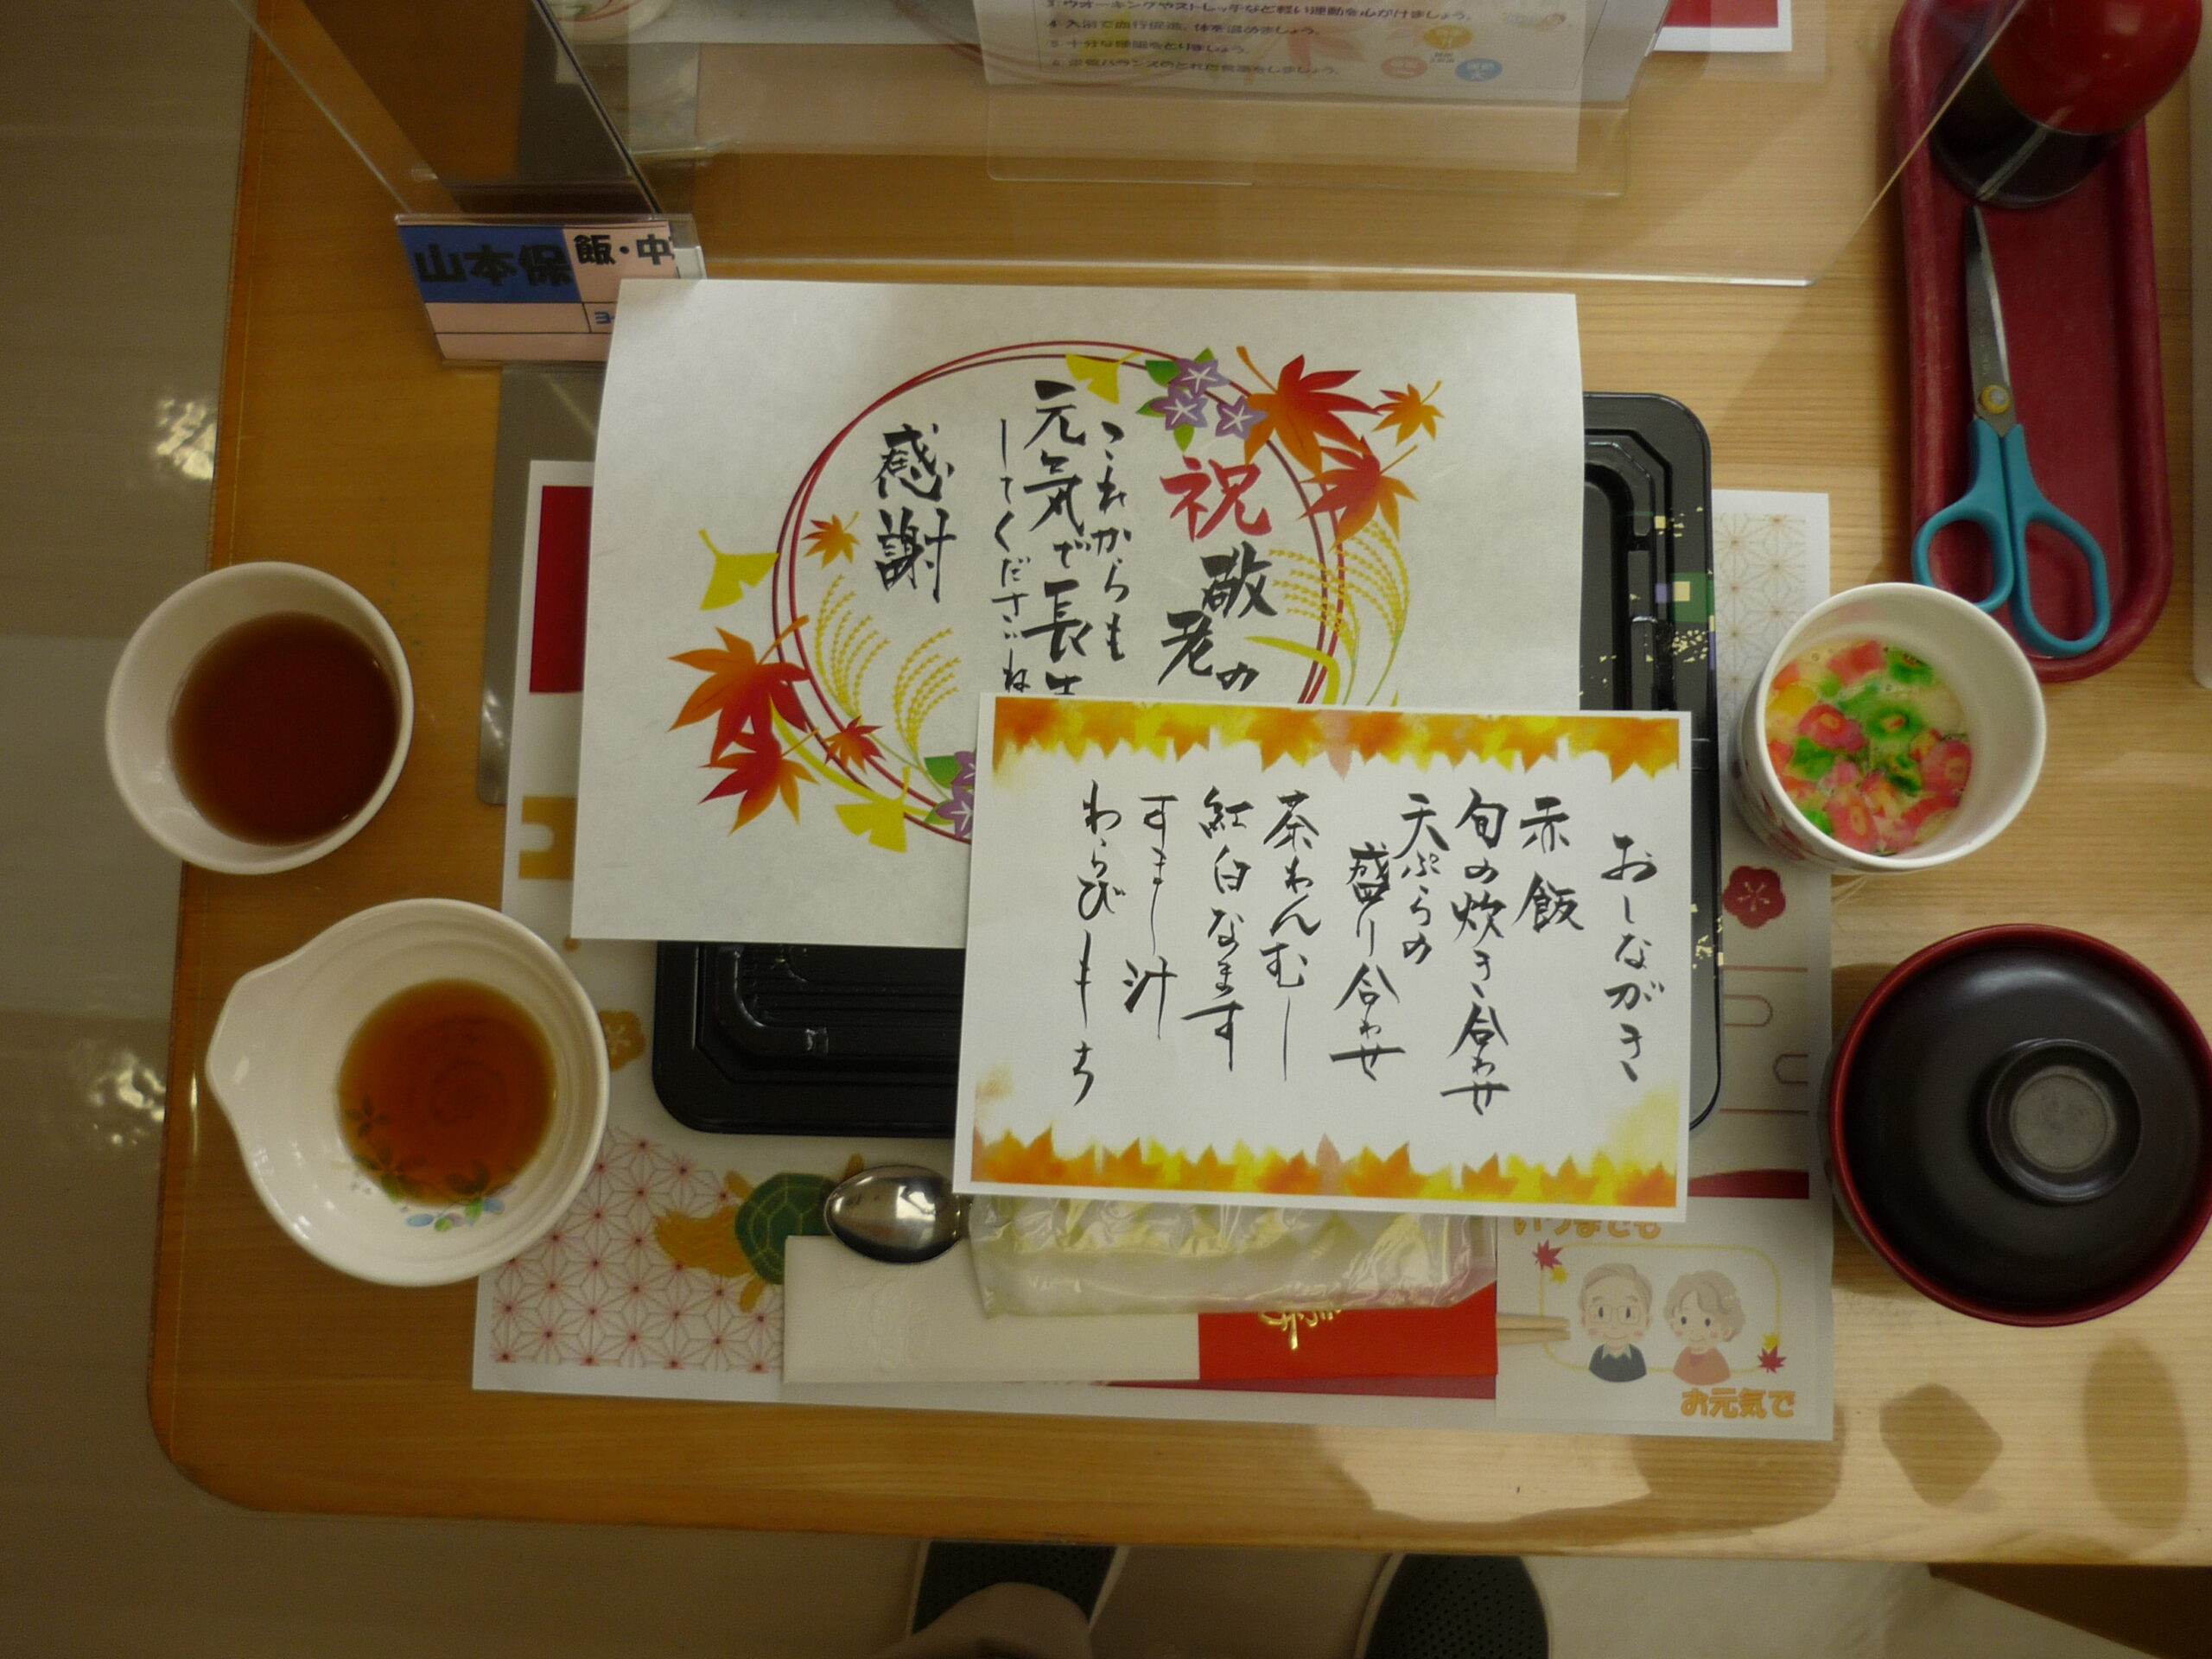 3 ウオーキングやストレッチなど軽い運動を心がけましょう。
4 入浴で血行促進、体を温めましょう。
5 十分な睡眠をとりましょう。
6 栄養バランスのとれた食事をしましょう。
山本保
飯・中
ヨ
祝
敬老の
これからも
元気で長生
してくださいね
感謝
おしながき
赤飯
旬の炊き合わせ
天ぷらの
盛り合わせ
茶わんむし
紅白なます
すまし汁
わらびもち
いつまでも
お元気で